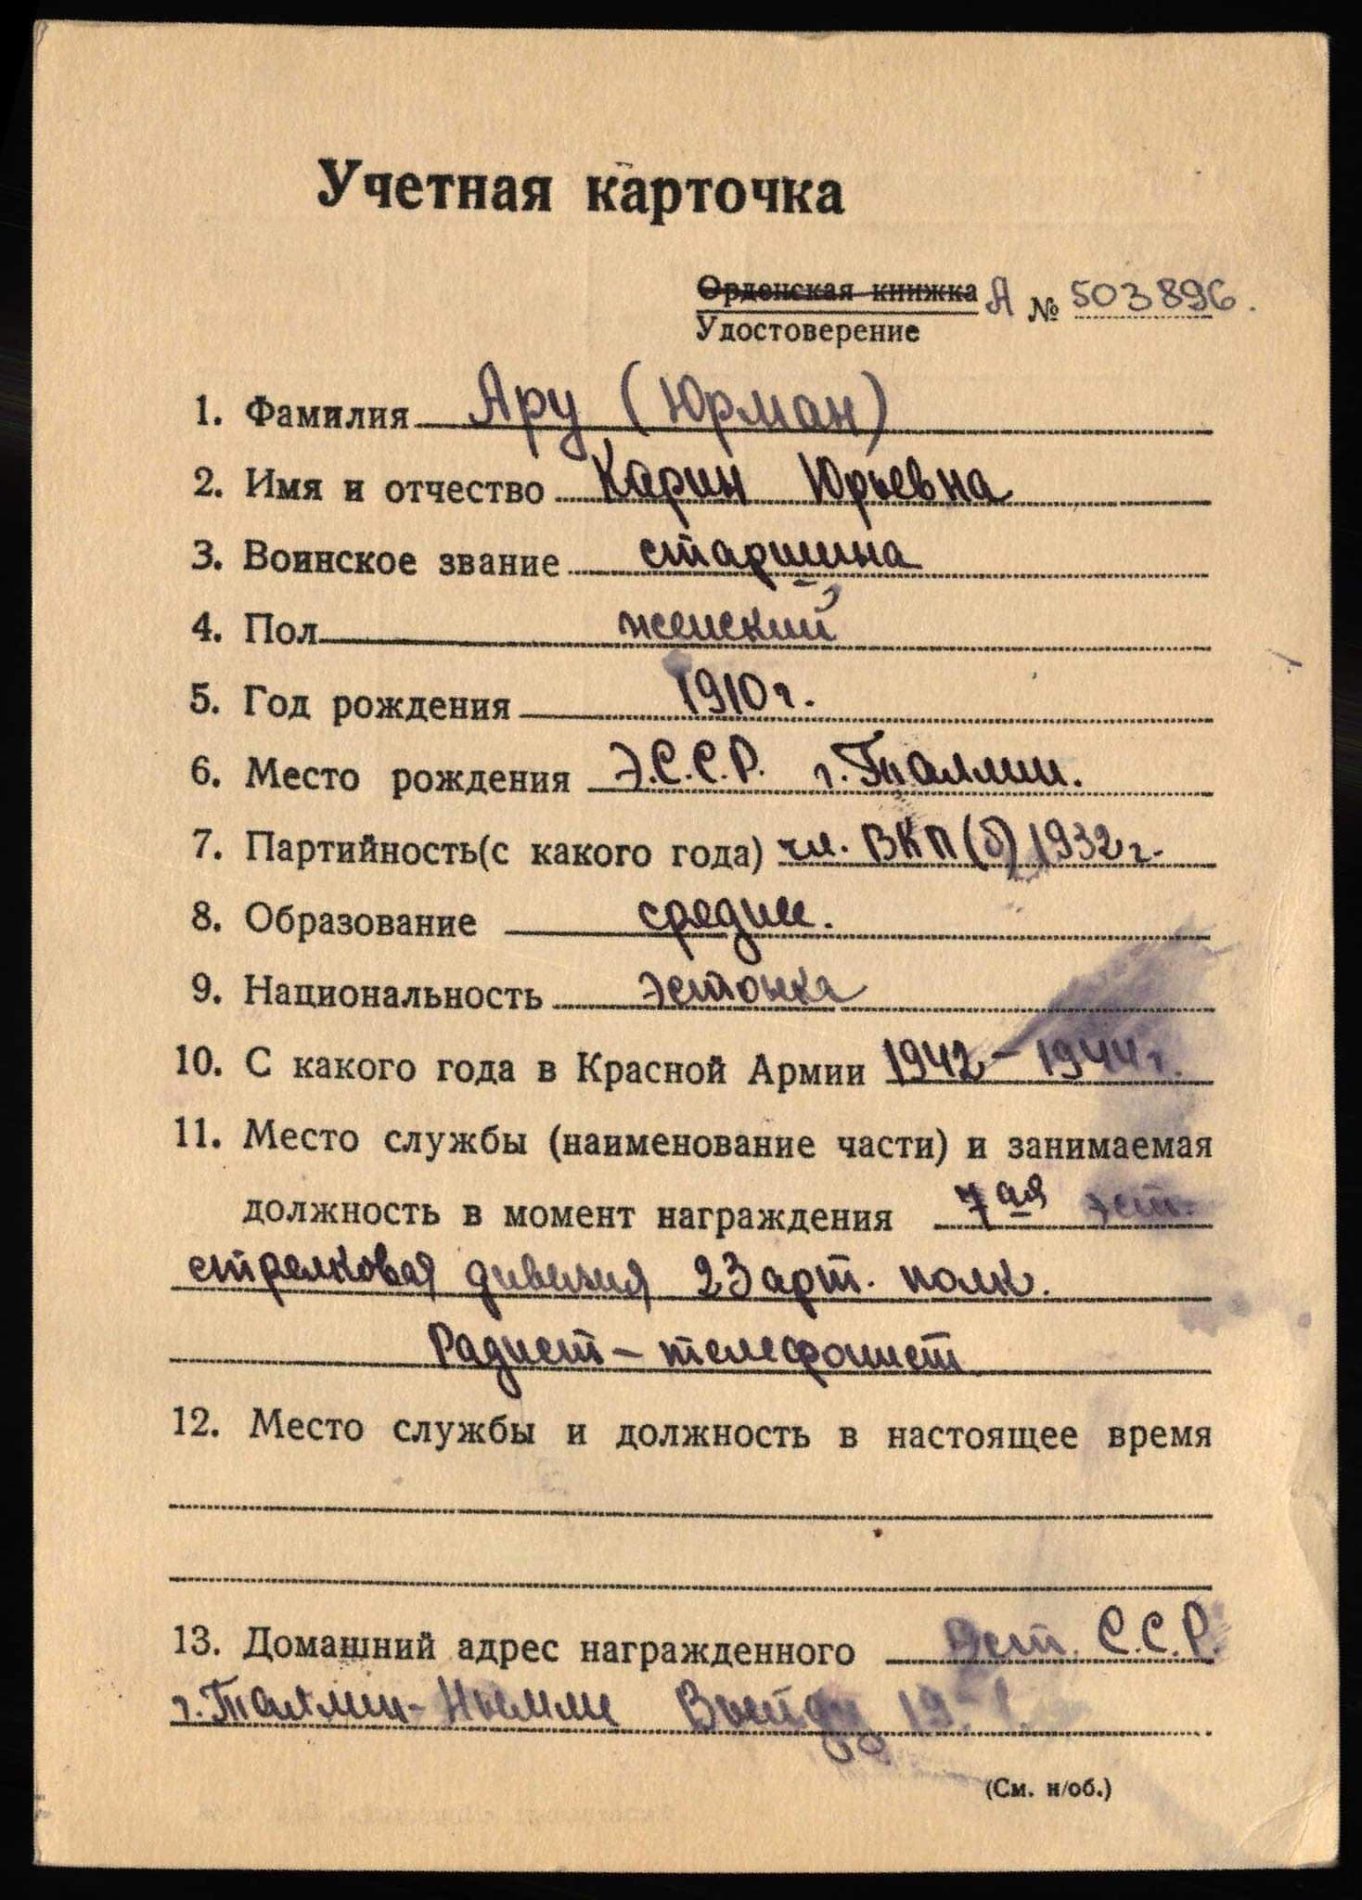 Учетная карточка
Орденская книжка А № 503896.
Удостоверение
1. Фамилия Ару (Юрман)
2. Имя и отчество Карин Юрьевна
3. Воинское звание старшина
4. Пол женский
5. Год рождения 1910 г.
6. Место рождения Э.С.С.Р. г. Таллин.
7. Партийность (с какого года) чл. ВКП(б) 1932 г.
8. Образование среднее.
9. Национальность эстонка
10. С какого года в Красной Армии 1942 - 1944 г.
11. Место службы (наименование части) и занимаемая
должность в момент награждения 7ая эст.
стрелковая дивизия 23 арт. полк.
Радист - телефонист
12. Место службы и должность в настоящее время
13. Домашний адрес награжденного Эст. С.С.Р.
г. Таллин - Нымме
(См. н/об.)